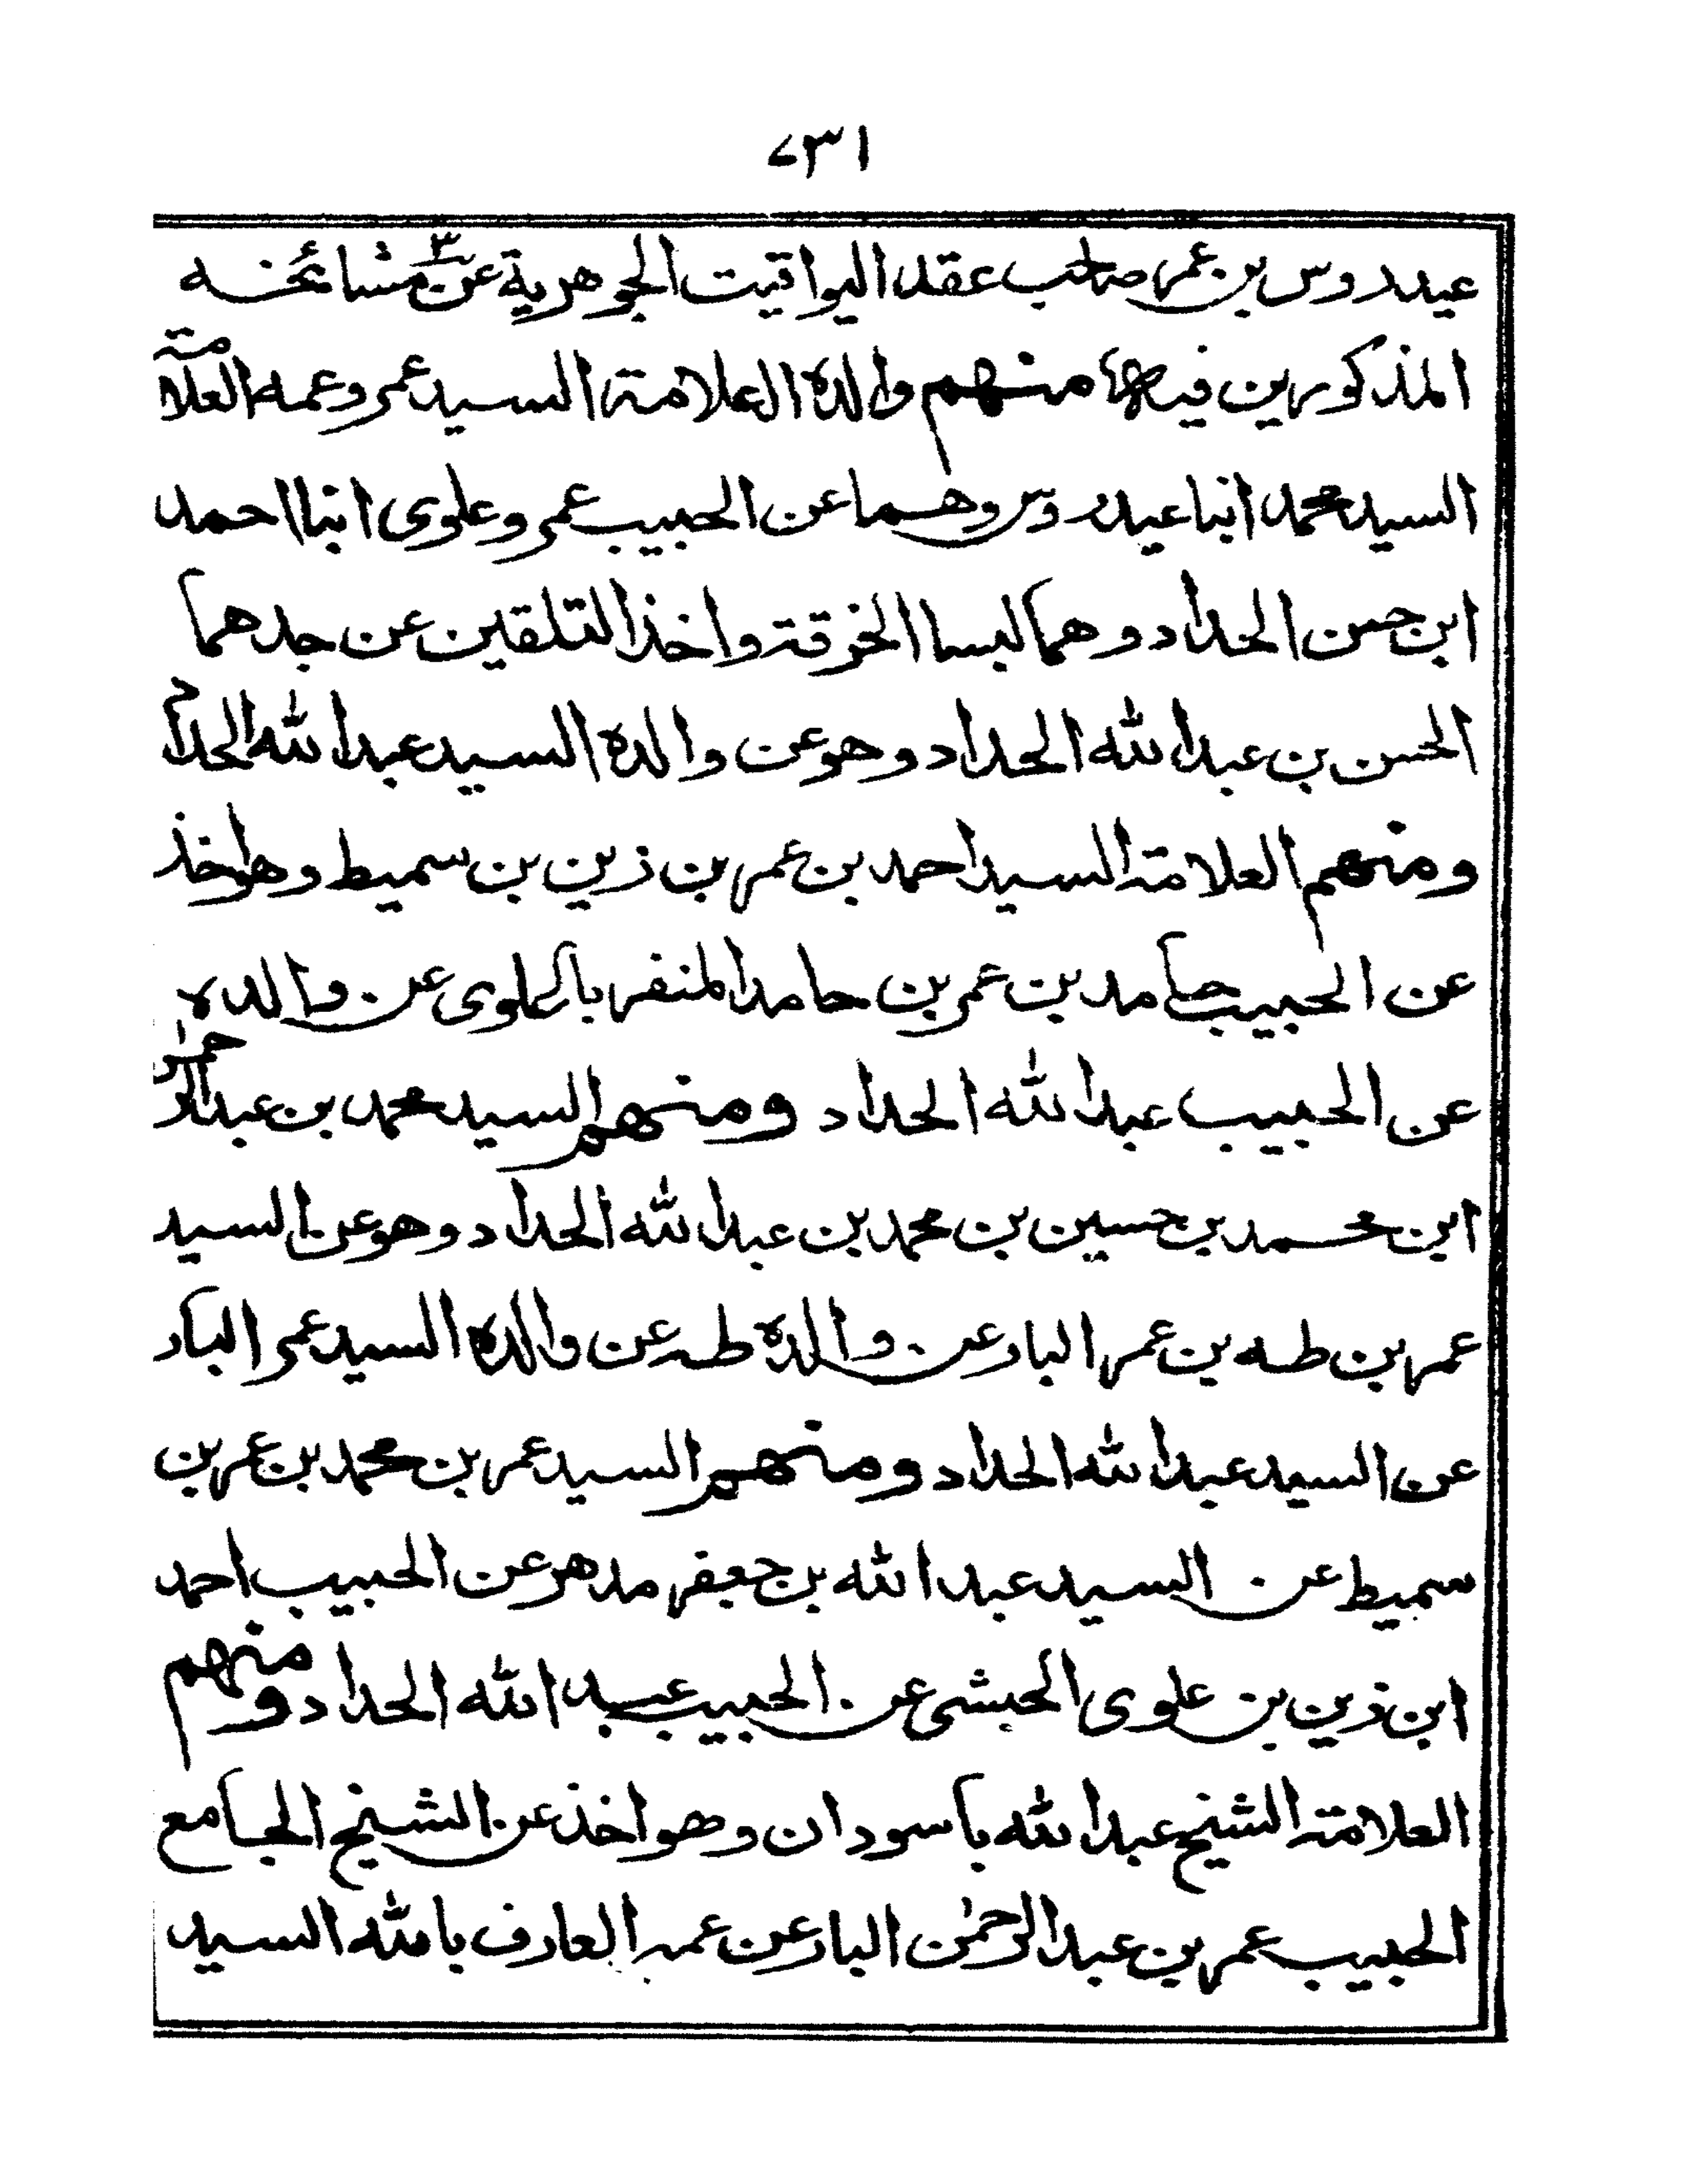 ١٣٧
عيدروس بن عمر صاحب عقد اليواقيت الجوهرية عن٣ مشائخه
المذكورين فيها منهم والده العلامة السيد عمر وعمه العلامة
السيد محمد ابنا عيدروس وهما عن الحبيب عمر وعلوى ابنا احمد
ابن حسن الحداد وهما لبسا الخرقة واخذا التلقين عن جدهما
الحسن بن عبدالله الحداد وهو عن والده السيد عبدالله الحداد
ومنهم العلامة السيد احمد بن عمر بن زين بن سميط وهو اخذ
عن الحبيب حامد بن عمر بن حامد المنفر باعلوى عن والده
عن الحبيب عبدالله الحداد ومنهم السيد محمد بن عبدالرحمن
ابن محمد بن حسين بن محمد بن عبدالله الحداد وهو عن السيد
عمر بن طه بن عمر البار عن والده طه عن والده السيد عمر البار
عن السيد عبدالله الحداد ومنهم السيد عمر بن محمد بن عمر بن
سميط عن السيد عبدالله بن جعفر مدهر عن الحبيب احمد
ابن زين بن علوى الحبشى عن الحبيب عبدالله الحداد ومنهم
العلامة الشيخ عبدالله باسودان وهو اخذ عن الشيخ الجامع
الحبيب عمر بن عبدالرحمٰن البار عن عمه العارف بالله السيد